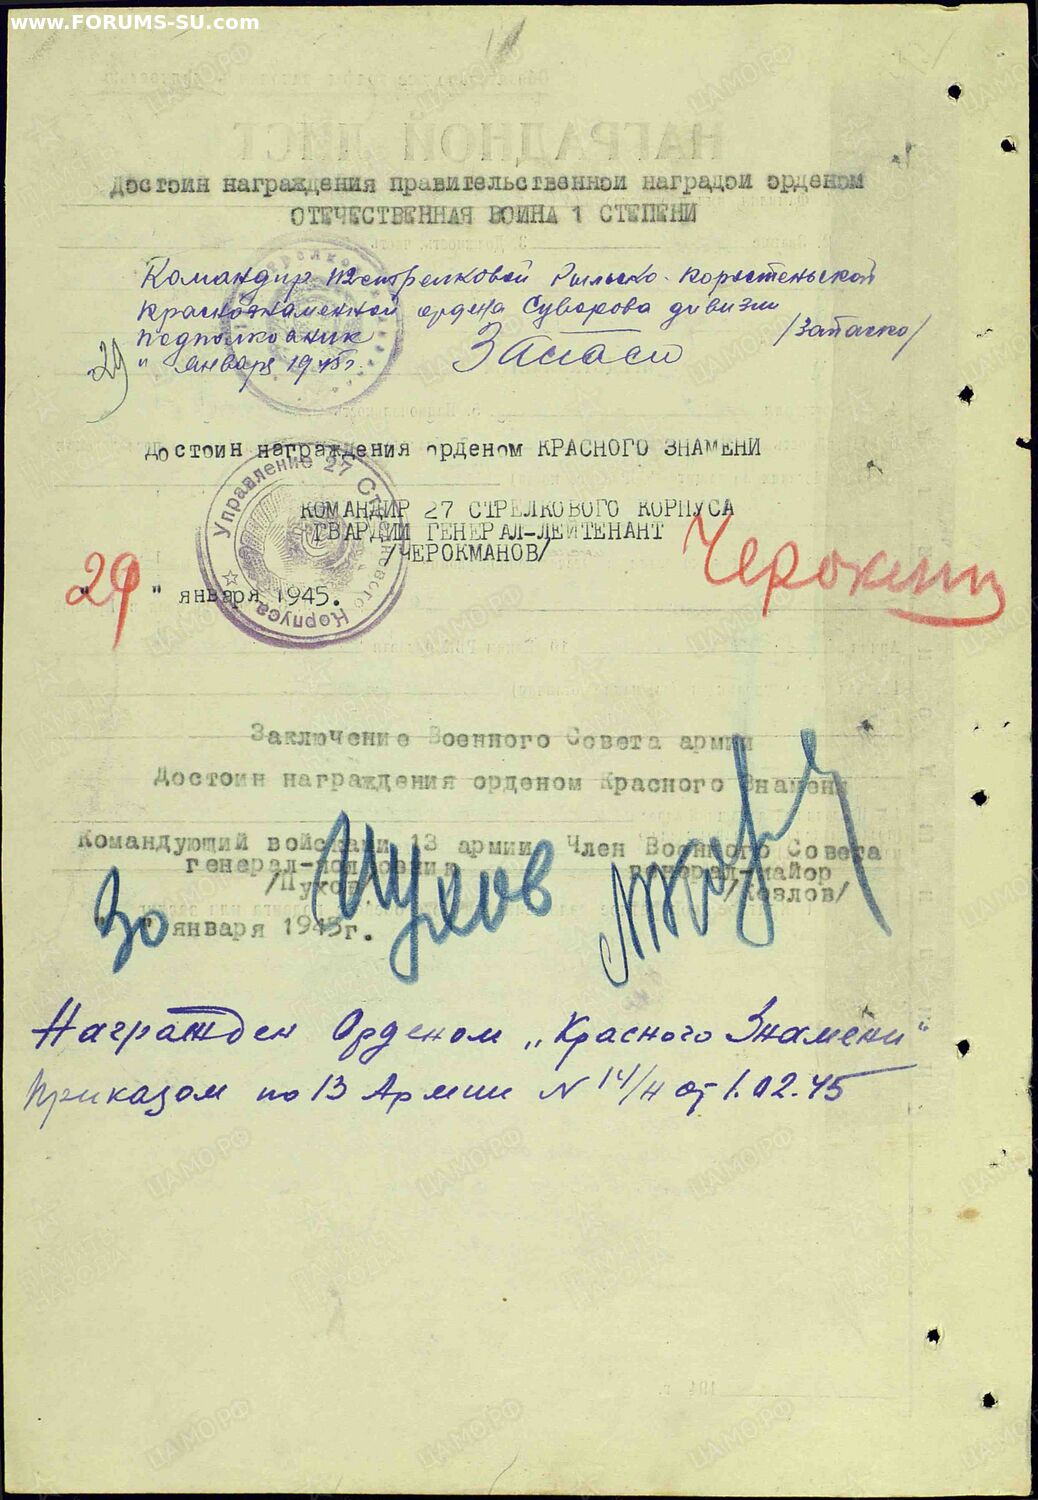 www.FORUMS-SU.com
НАГРАДНОЙ ЛИСТ
Достоин награждения правительственной наградой орденом
ОТЕЧЕСТВЕННАЯ ВОЙНА 1 СТЕПЕНИ
Командир 112 стрелковой Рыльско-Коростеньской
Краснознаменной ордена Суворова дивизии
подполковник /Запаско/
"29" января 1945г.
Достоин награждения орденом КРАСНОГО ЗНАМЕНИ
Управление 27 Стрелкового Корпуса
КОМАНДИР 27 СТРЕЛКОВОГО КОРПУСА
ГВАРДИИ ГЕНЕРАЛ-ЛЕЙТЕНАНТ
/ЧЕРОКМАНОВ/
"29" января 1945.
Заключение Военного Совета армии
Достоин награждения орденом Красного Знамени
Командующий войсками 13 армии Член Военного Совета
генерал-полковник генерал-майор
/Пухов/ /Козлов/
"30" января 1945г.
Награжден Орденом „Красного Знамени"
Приказом по 13 Армии N 14/н от 1.02.45